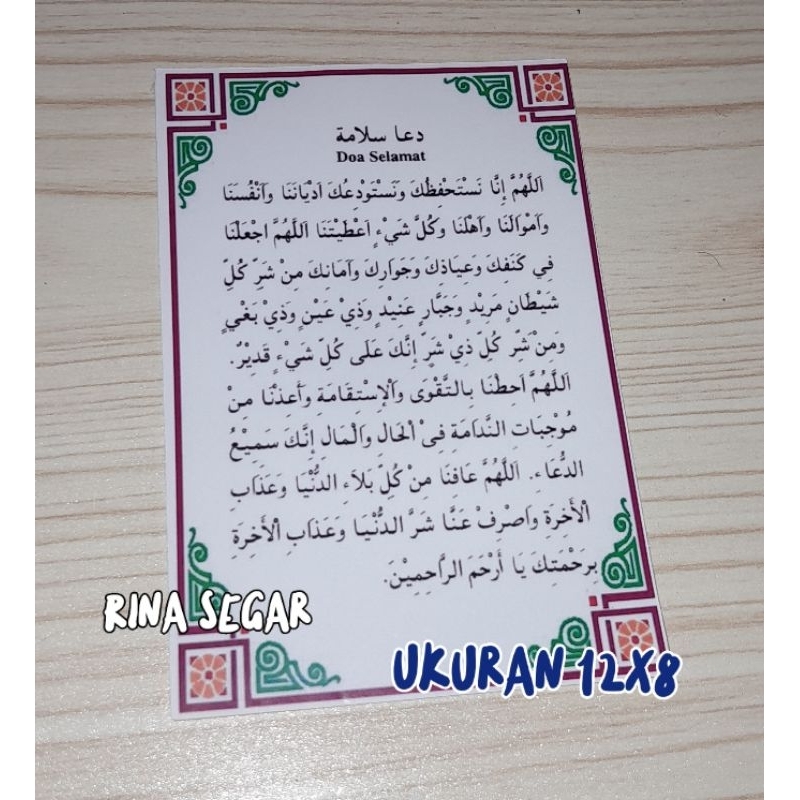 دعا سلامة
Doa Selamat
اَللَّهُمَّ إِنَّا نَسْتَحْفِظُكَ وَنَسْتَوْدِعُكَ اَدْيَانَنَا وَاَنْفُسَنَا
وَاَمْوَالَنَا وَاَهْلَنَا وَكُلَّ شَيْءٍ اَعْطَيْتَنَا اَللَّهُمَّ اجْعَلْنَا
فِي كَنَفِكَ وَعِيَاذِكَ وَجَوَارِكَ وَاَمَانِكَ مِنْ شَرِّ كُلِّ
شَيْطَانٍ مَرِيْدٍ وَجَبَّارٍ عَنِيْدٍ وَذِيْ عَيْنٍ وَذِيْ بَغْيٍ
وَمَنْ شَرِّ كُلِّ ذِيْ شَرٍّ إِنَّكَ عَلَى كُلِّ شَيْءٍ قَدِيْرٌ.
اَللَّهُمَّ اَحِطْنَا بِالتَّقْوَى وَالْاِسْتِقَامَةِ وَأَعِذْنَا مِنْ
مُوْجِبَاتِ النَّدَامَةِ فِىْ الْحَالِ وَالْمَالِ إِنَّكَ سَمِيْعُ
الدُّعَاءِ. اَللَّهُمَّ عَافِنَا مِنْ كُلِّ بَلَاءِ الدُّنْيَا وَعَذَابِ
الْأَخِرَةِ وَاصْرِفْ عَنَّا شَرَّ الدُّنْيَا وَعَذَابِ الْأَخِرَةِ
بِرَحْمَتِكَ يَا أَرْحَمَ الرَّاحِمِيْنَ.
RINA SEGAR
UKURAN 12X8